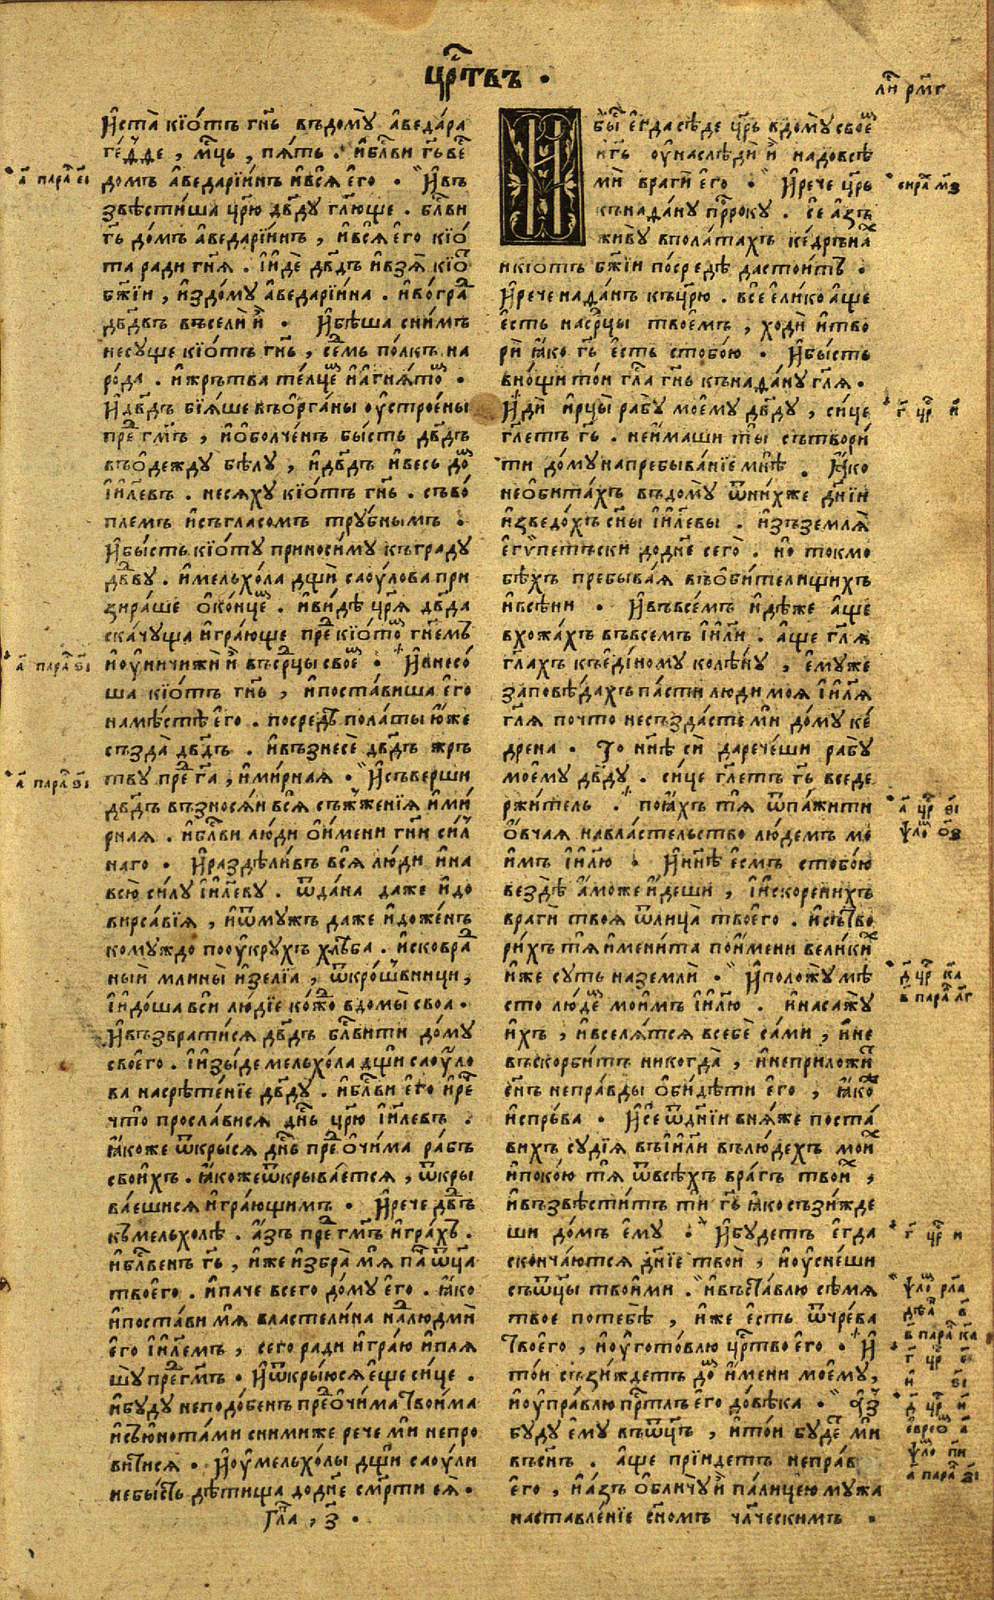 цр҃твъ ·
лⷭ҇ рм҃г
И҆ста̀ кїѻ́тъ гн҃ь въдомꙋ̀ а҆ведара
ге́дⷣе , мцⷭ҇ь , пѧ́ть . и҆бл҃ви гь҃ веⷭ҇
домъ а҆ведарїинъ и҆всѧ̀ е҆го · И҆въ
звѣсти́ша цр҃ю дв҃дꙋ гл҃юще . бл҃ви
гь҃ до́мъ а҆ведарїинъ , и҆всѧ̀ е҆го кїѻ́
та ради гн҃ѧ . и҆и҆дѐ дв҃дъ и҆взѧ̀ кїѻⷮ
бж҃їи , издо́мꙋ а҆ведарїина . и҆во́граⷣ
дв҃двъ въсе́лїи҆ · И҆бѣ́ша сни́мъ
несꙋще кїѻ́тъ гн҃ь , се́мь по́лкъ на
ро́да . и҆жрътва те́лцеⷨ и҆а҆гнѧ́тоⷨ ·
И҆дв҃дъ бїѧ́ше въѻ҆рга́ны оу҆строе́ны
преⷣ гм҃ъ , и҆ѻ҆болче́нъ бы́сть дв҃дъ
въѻ҆де́ждꙋ бѣ́лꙋ , и҆дв҃дъ и҆весь доⷨ
і҆и҃левъ . несѧ́хꙋ кїѻ́тъ гн҃ь . съво́
племъ и҆съгласомъ трꙋ́бнымъ .
И҆бы́сть кїѻ́тꙋ приноси́мꙋ къградꙋ
дв҃вꙋ . и҆мелхо́ла дщ҃и саоу́лова при
зира́ше ѻ҆ко́нцеⷨ . и҆ви́дѣ цр҃ѧ дв҃да
ска́чꙋща и҆гра́юще преⷣ кїѻ́тоⷨ гн҃емъ
и҆оу҆ничижѝ и҆̀ въсрⷣцы своеⷨ · И҆внесо́
ша кїѻ́тъ гн҃ь , и҆поста́виша е҆го
намѣ́стѣ е҆го . посредѣ̀ пола́ты ю҆же
създа̀ дв҃дъ . и҆възнесѐ дв҃дъ жръ
твꙋ преⷣ га҃ , и҆ми́рнаѧ · И҆съверши
дв҃дъ възносѧ́и всѧ̀ съжже́нїѧ и҆ми́
рнаѧ . и҆бл҃ви лю́ди ѻ҆и҆мени гн҃и сиⷧ
наго · И҆раздѣли́въ всѧ̀ лю́ди и҆на
всю̀ си́лꙋ і҆и҃левꙋ . ѿда́на даже и҆до
вирса́вїѧ , и҆ѿмꙋжъ даже и҆до́женъ
комꙋждо пооу҆крꙋхъ хлѣ́ба . и҆сковраⷣ
ный млинъ̀ и҆зелїа , ѿкро́шевници ,
і҆и҆до́ша вси лю́дїе ко́жⷣо вдомы̀ своа .
И҆възврати́сѧ дв҃дъ бл҃вити до́мꙋ
своего . і҆и҆зы́де мелхо́ла дщ҃и саоу́ло
ва насрѣ́тенїе дв҃дꙋ . и҆бл҃ви е҆го и҆реⷱ
что̀ просла́висѧ дн҃ь цр҃ю і҆и҃левъ .
ꙗ҆коже ѿкры́сѧ дн҃ь преⷣѻ҆чима ра́бъ
свои́хъ . ꙗ҆кожеѿкрыва́етсѧ , ѿкры
ва́ешисѧ и҆гра́ющимъ · И҆рече дв҃дъ
къмелхо́лѣ . а҆зъ преⷣ гм҃ъ и҆гра́хъ .
и҆бл҃венъ гь҃ , и҆же и҆збра̀ мѧ̀ паⷱ ѿц҃а
твоего̀ . и҆паче всего̀ до́мꙋ е҆го . ꙗ҆ко
и҆поста́ви мѧ̀ власте́лина наⷣлюдмѝ
его̀ і҆и҃лемъ , сего̀ ради и҆гра́ю и҆плѧ
шꙋ̀ преⷣ гм҃ъ . И҆ѿкры́юсѧ е҆ще си́це .
и҆бꙋдꙋ непо́добенъ преⷣѻ҆чи́ма твои́ма
и҆съю҆но́тами снимиже рече ми̇ непро
ви́тисѧ · И҆оу҆ мелхо́лы дщ҃и саоу́ли
небы́сть дѣ́тища додн҃е сме́рти еѧ̀ .
гл҃а , з҃ .
И҆бы́ⷭ҇ е҆гда сѣ́де цр҃ь вдомꙋ̀ своеⷨ
и҆гь҃ оу҆наслѣ́ди и҆̀ надовсѣ
мѝ врагѝ е҆го · И҆рече цр҃ь
къна́ѳанꙋ прⷪ҇рокꙋ . се а҆зъ
живꙋ̀ вполатахъ ке́дрънаⷯ
и҆кїѻ́тъ бж҃їи посредѣ̀ да́стоитъ .
И҆рече наѳа́нъ къцр҃ю . всѐ е҆ли́ко а҆ще
е҆сть насрⷣцы твое́мъ , ходѝ и҆тво
рѝ ꙗ҆ко гь҃ е҆сть стобо́ю · И҆бы́сть
вно́щи то́и гл҃а гн҃ь кънаѳа́нꙋ гл҃ѧ .
И҆дѝ и҆рцы̀ рабꙋ̀ моемꙋ̀ дв҃дꙋ , си́це
гл҃етъ гь҃ . неи҆маши ты̀ сътвори́
ти до́мꙋ напребыва́нїе мнѣ̀ . ꙗ҆ко
неѻ҆бита́хъ въдомꙋ̀ ѿни́хже дн҃їи
и҆зведо́хъ сн҃ы і҆и҃левы . и҆зъземлѧ̀
е҆гѵпетъски додн҃е сего̀ . но̀ токмо
бѣ́хъ пребыва́ѧ въѻ҆би́телищихъ
и҆всѣ́ни · И҆въвсе́мъ и҆дѣ́же а҆ще
вхожа́хъ въвсемъ і҆и҃ли . а҆ще гл҃ѧ
гл҃ахъ къе҆ди́номꙋ колѣ́нꙋ , е҆мꙋже
заповѣ́дахъ пасти лю́ди моѧ̀ і҆и҃лѧ
гл҃ѧ почто̀ несъзда́сте ми̇ до́мꙋ ке́
дрена · То̀ нн҃ѣ сѝ даречеши рабꙋ̀
моемꙋ̀ дв҃дꙋ . си́це гл҃етъ гь҃ вседе
ржи́тель . поѧ́хъ тѧ̀ ѿпа́жити
ѻ҆́вчаѧ навла́стельство лю́демъ мо
и҆мъ і҆и҃лю · И҆нн҃ѣ е҆смъ стобо́ю
вездѣ̀ а҆може и҆́деши , и҆искорени́хъ
врагѝ твоѧ̀ ѿлица̀ твоего . и҆сътво
ри́хъ тѧ̀ и҆мени́та пои҆мени вели́киⷯ
и҆же сꙋть наземлѝ · И҆положꙋ мѣ́
сто лю́деⷨ мои́мъ і҆и҃лю . и҆насаждꙋ
и҆хъ , и҆вселѧ́тсѧ всебѐ са́ми , и҆не
въскорбитъ никогда̀ , и҆неприложи́ⷮ
сн҃ъ непра́вды ѻ҆би́дѣти е҆го , ꙗ҆коⷤ
и҆спръва · И҆се ѿдн҃їи внѧ́же поста́
вихъ сꙋдїѧ̀ въі҆и҃ли влю́дехъ моиⷯ
и҆поко́ю тѧ̀ ѿвсѣ́хъ вра́гъ твоиⷯ ,
и҆възвѣсти́тъ ти̇ гь҃ ꙗ҆ко съзи́жде
ши до́мъ е҆мꙋ · И҆бꙋ́детъ е҆гда
скончаю́тсѧ дн҃їе твоѝ , и҆оу҆снеши
съѿцы̀ твои́ми . и҆въста́влю сѣ́мѧ
твоѐ потебѣ̀ , иже е҆сть ѿчре́ва
твоего̀ , и҆оу҆гото́влю цр҃тво е҆го · И҆
то́и съзи́ждетъ доⷨ и҆мени моемꙋ̀ ,
и҆оу҆пра́влю прⷭ҇тлъ е҆го до́вѣка · а҆́зъ
бꙋдꙋ е҆мꙋ̀ въѿц҃ъ , и҆то́и бꙋдеⷮ ми
въсн҃ъ . а҆ще прїи́детъ неправ
е҆го , и҆а҆зъ ѻ҆бличꙋ̀ и҆̀ па́лицею мꙋжа
наставле́нїе сн҃омъ чл҃ческимъ .
а҃ параⷧ е҃і
а҃ параⷧ ѕ҃і
а҃ параⷧ ѕ҃і
сираⷯ м҃з
г҃ црⷭ҇ и҃
а҃ црⷭ҇ ѕ҃і
ѱалоⷨ о҃з
д҃ црⷭ҇ к҃а
в҃ параⷧ л҃г
г҃ црⷭ҇ и҃
ѱалоⷨ рл҃а
дѣꙗⷩ҇ в҃
в҃ параⷧ к҃а
г҃ црⷭ҇ е҃
и҃ ѕ҃і
д҃ црⷭ҇ и҃
евреѡⷨ а҃
ѱалоⷨ п҃и
а҃ параⷧ з҃і